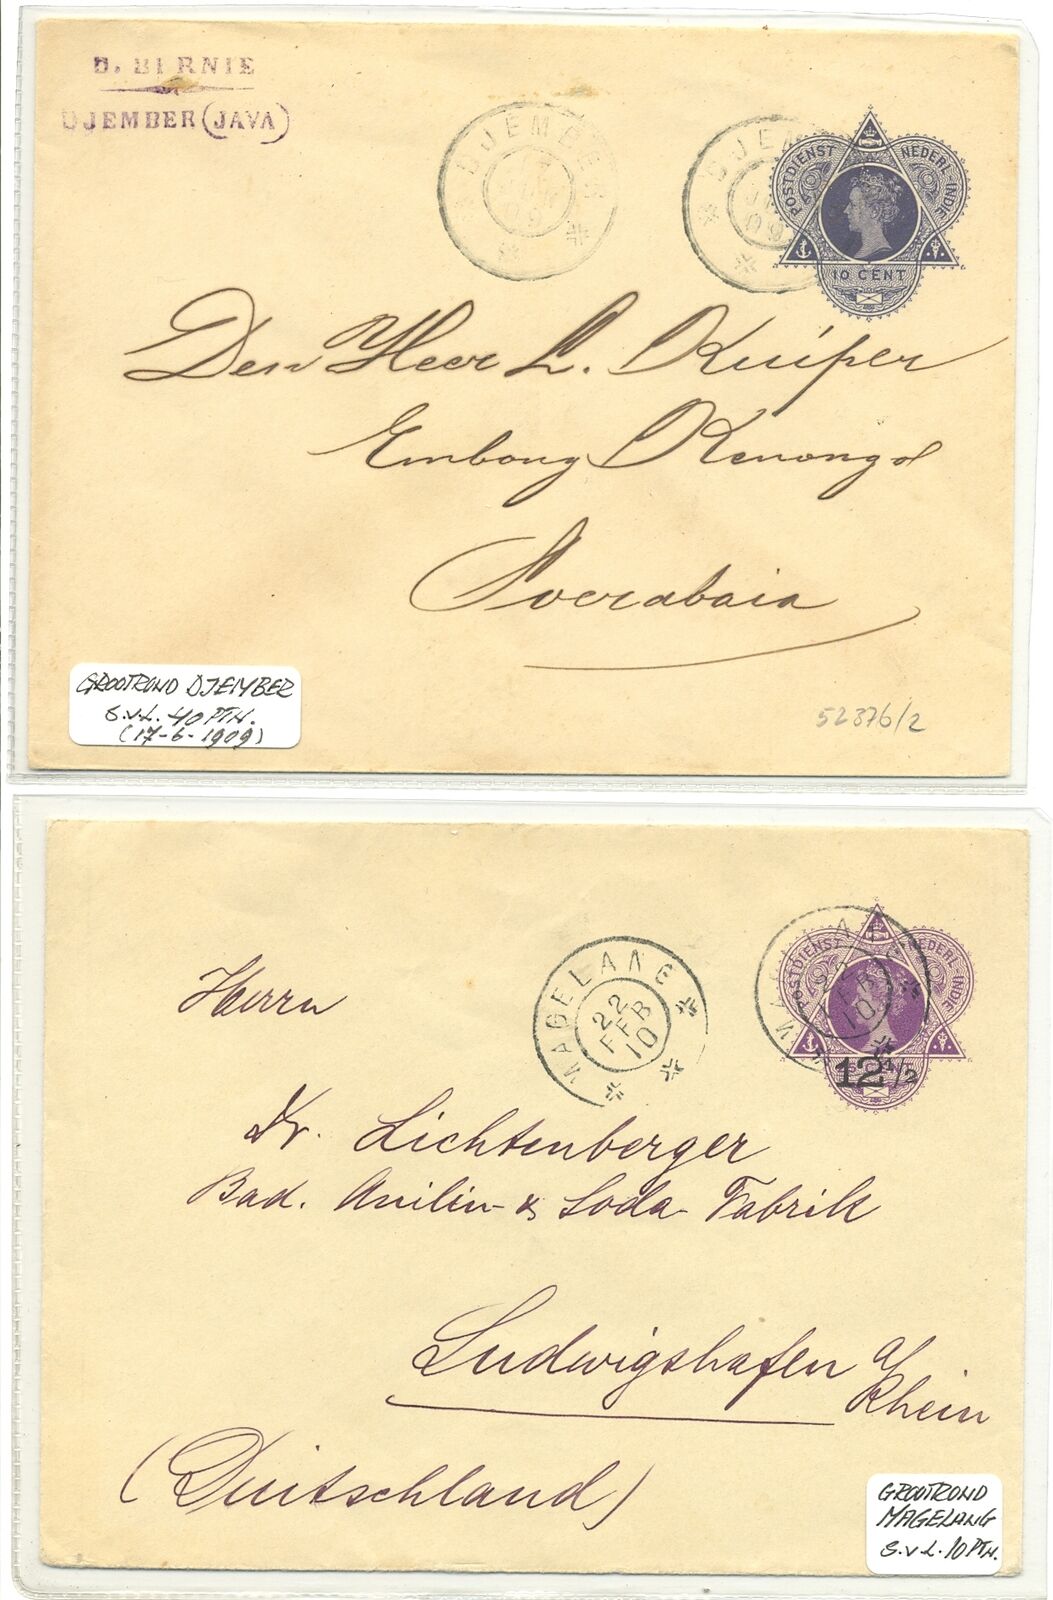 D. BIRNIE
DJEMBER (JAVA)
DJEMBER
17
JUN
09
DJEM
JU
09
POSTDIENST NEDERL-INDIE
10 CENT
Den Heer L. Kuiper
Embong Kenongo
Soerabaia
GROOTROND DJEMBER
S.v.L. 40 PTN.
(17-6-1909)
52376/2
MAGELANG
22
FEB
10
MAGELANG
22
FEB
10
POSTDIENST NEDERL-INDIE
12 1/2
Herrn
Dr. Lichtenberger
Bad. Anilin- & Soda- Fabrik
Ludwigshafen a/
Rhein
(Duitschland)
GROOTROND
MAGELANG
S.v.L. 10 PTN.